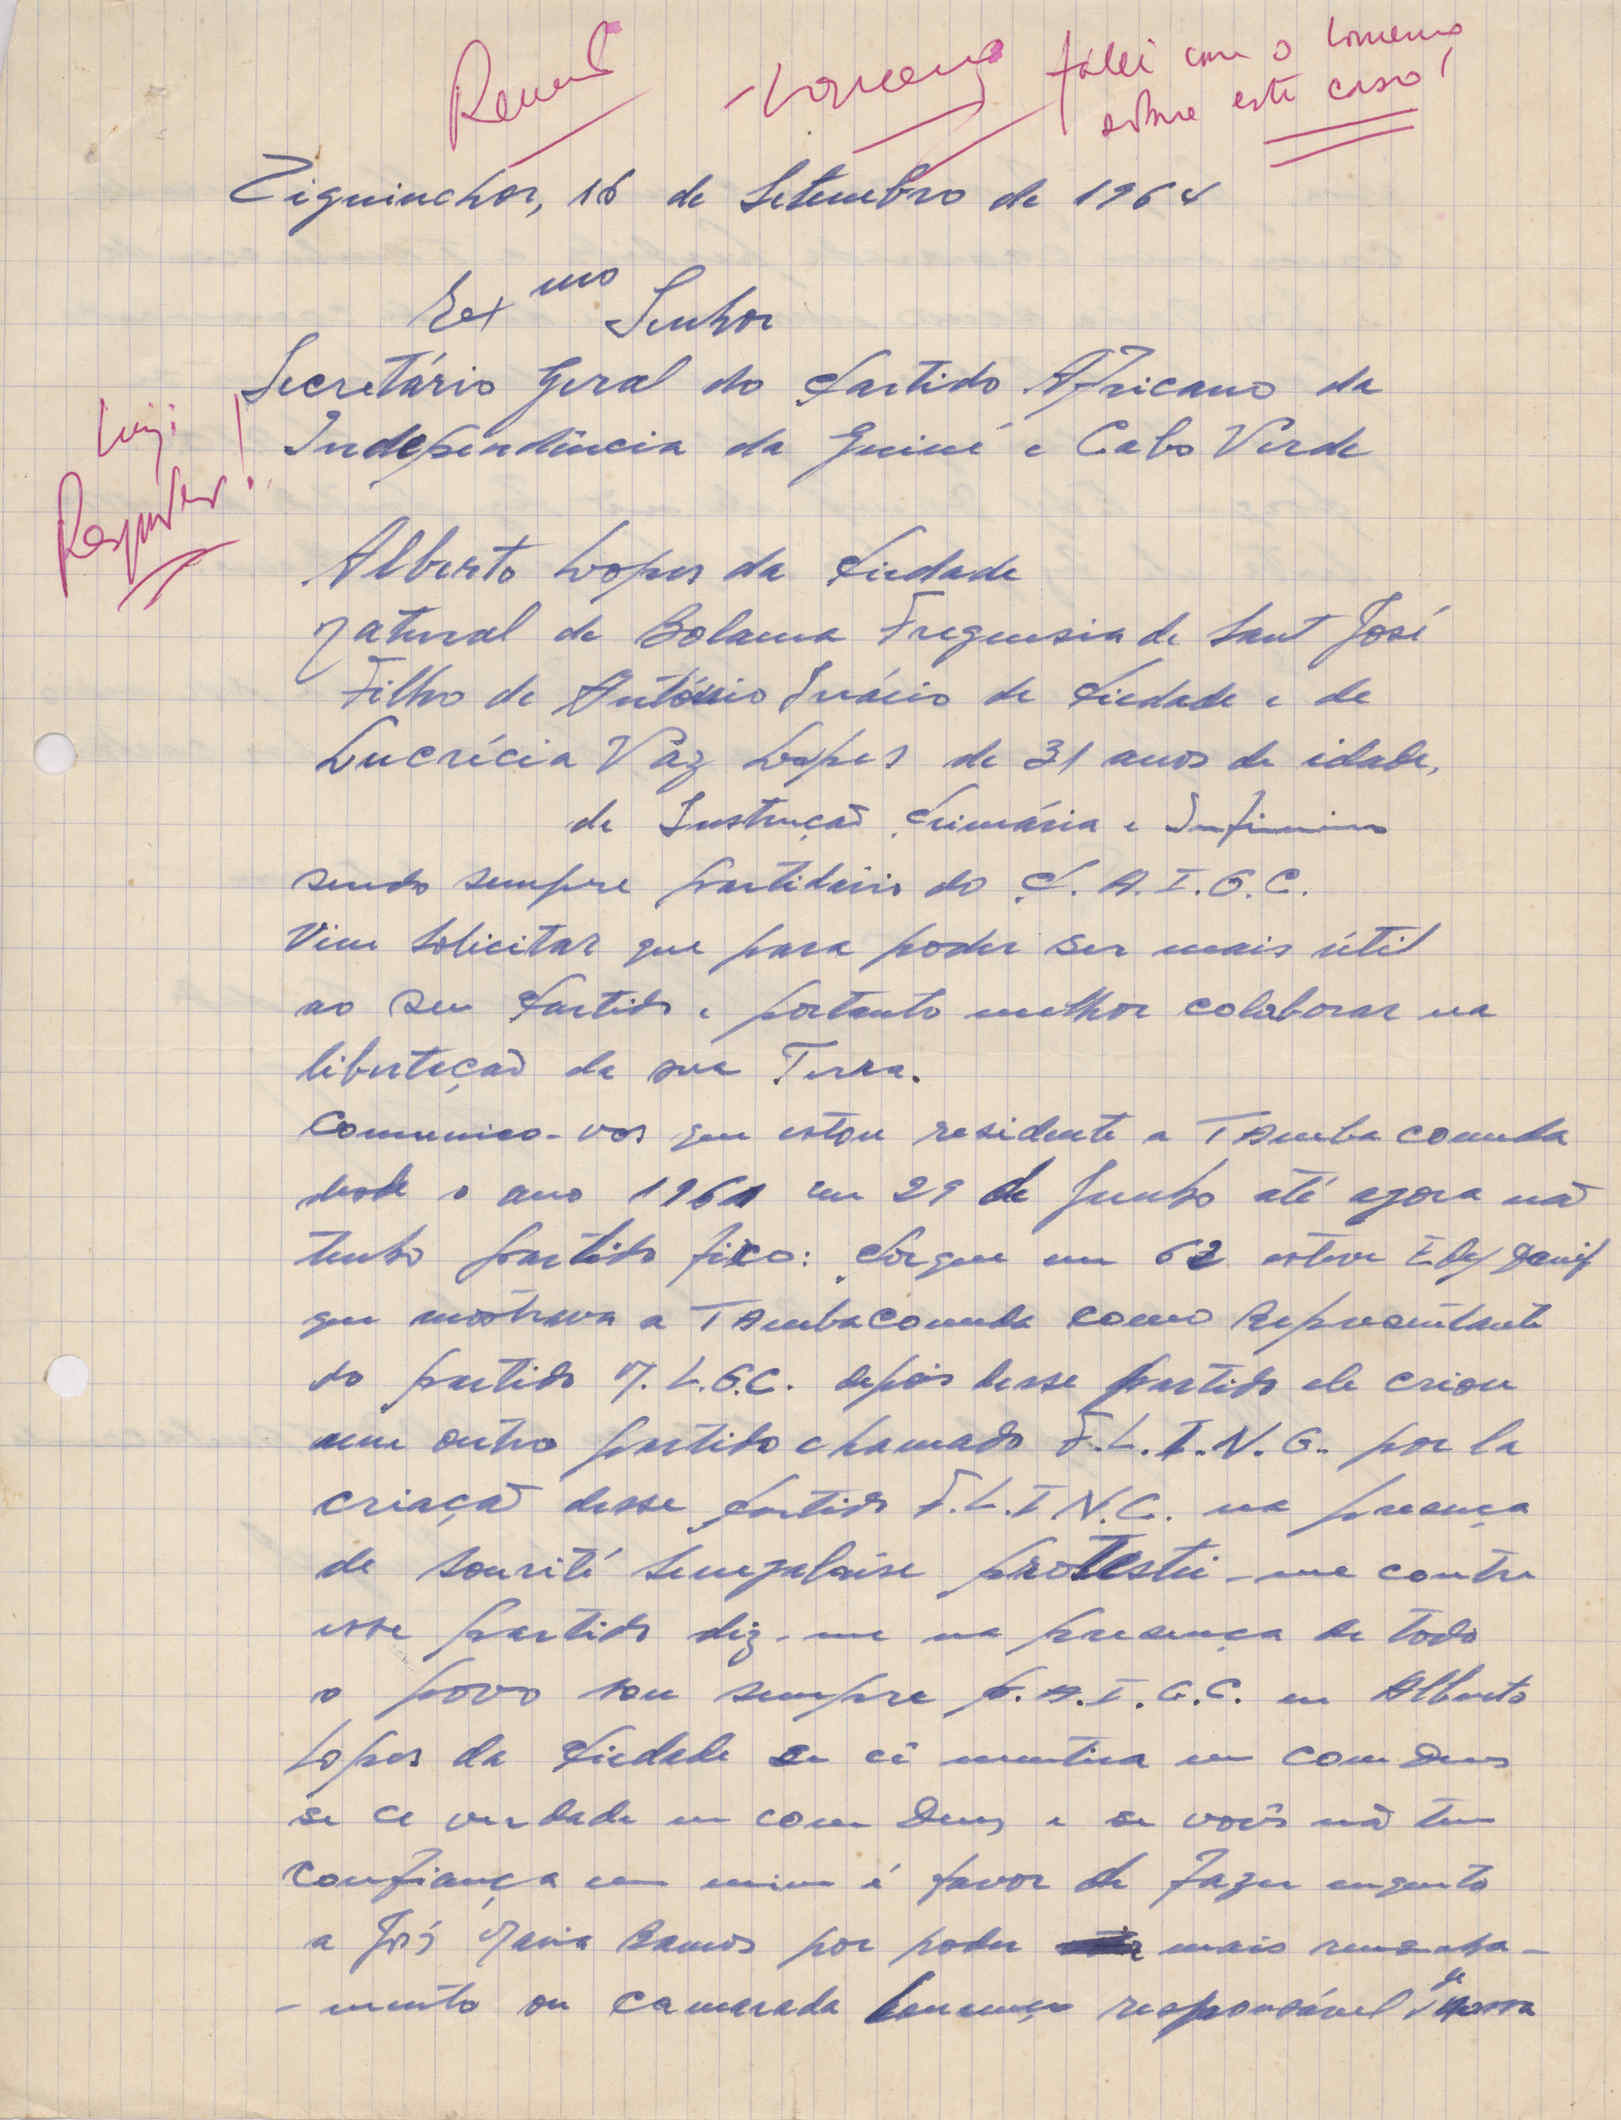 Lourenço falei com o Lourenço
sobre este caso!
Ziguinchor, 16 de Setembro de 1964
Exmo Senhor
Secretário Geral do Partido Africano da
Independência da Guiné e Cabo Verde
Luiz:
Responder!
Alberto Lopes da Piedade
Natural de Bolama Freguesia de Sant José
Filho de António Inácio de Piedade e de
Lucrécia Vaz Lopes de 31 anos de idade,
de Instrução Primária e
sendo sempre partidário do P. A. I. G. C.
Vim solicitar que para poder ser mais útil
ao seu Partido e portanto melhor colaborar na
libertação da sua Terra.
Comunico-vos que estou residente a Tambacounda
desde o ano 1961 em 29 de Junho até agora não
tenho partido fixo: Porque em 62 esteve
que mostrava a Tambacounda como Representante
do partido M. L. G. C. depois desse partido ele criou
um outro partido chamado F. L. I. N. G. por la
criação desse Partido F. L. I N. G. na presença
de sourité Senegalaise protestei-me contra
esse partido diz-me na presença de todo
o povo sou sempre P. A. I. G. C. eu Alberto
Lopes da Piedade se cê mentira eu com Deus
se ce verdade eu com Deus e se vocês não tem
confiança em mim é favor de fazer enquento
a José Maria Ramos por poder mais
-mento ou camarada Lourenço responsável de nossa